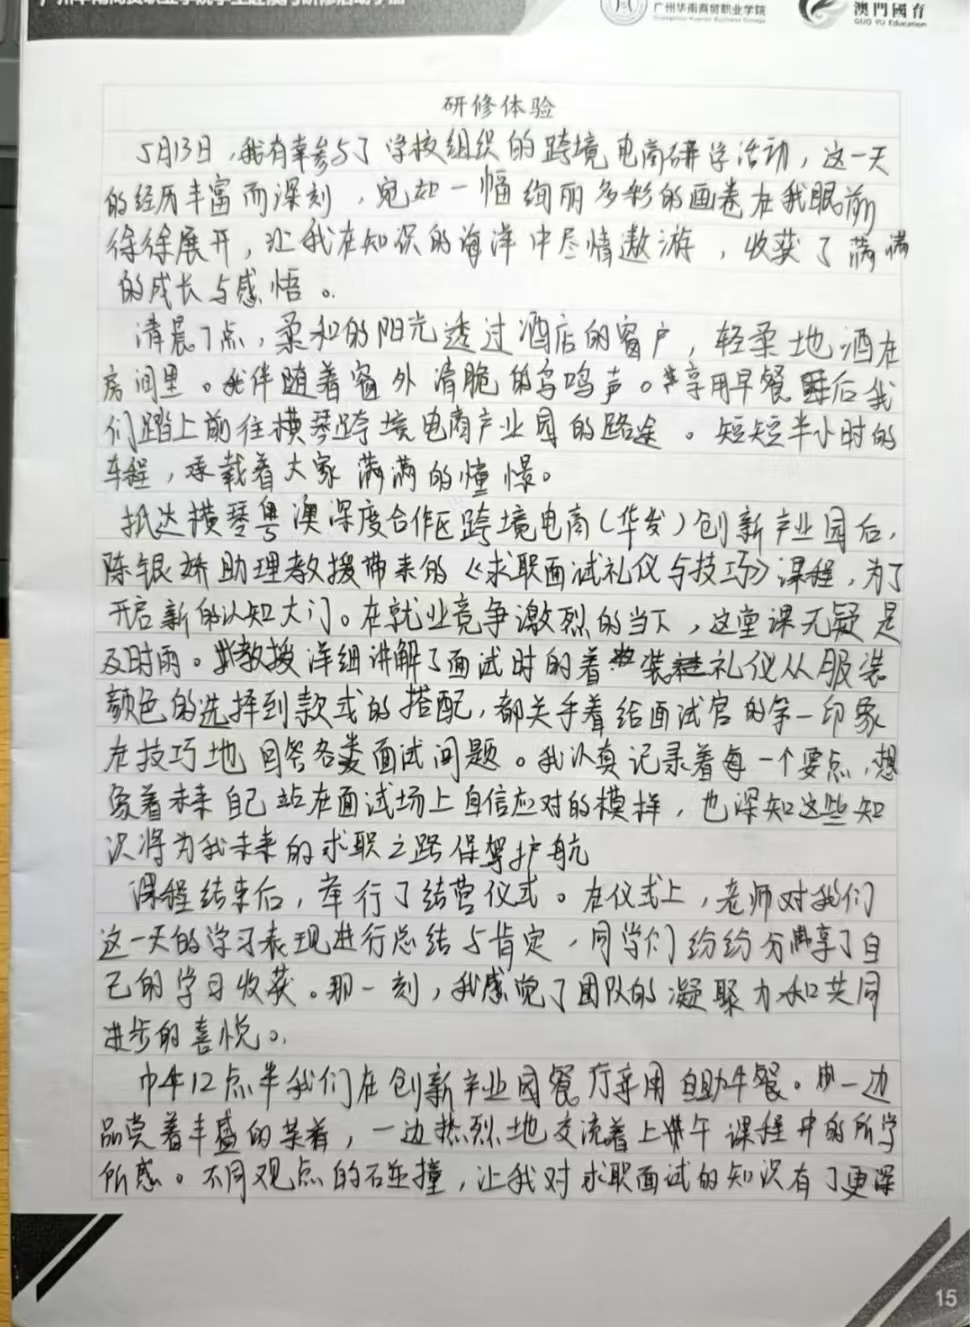 广州华南商贸职业学院
Guangzhou Huanan Business College
澳門國育
GUO YU Education
研修体验
5月13日,我有幸参与了学校组织的跨境电商研学活动,这一天
的经历丰富而深刻,宛如一幅绚丽多彩的画卷在我眼前
徐徐展开,让我在知识的海洋中尽情遨游,收获了满满
的成长与感悟。
清晨7点,柔和的阳光透过酒店的窗户,轻柔地洒在
房间里。我伴随着窗外清脆的鸟鸣声。享用早餐后我
们踏上前往横琴跨境电商产业园的路途。短短半小时的
车程,承载着大家满满的憧憬。
抵达横琴粤澳深度合作区跨境电商(华发)创新产业园后,
陈银娇助理教授带来的《求职面试礼仪与技巧》课程,为了
开启新的认知大门。在就业竞争激烈的当下,这堂课无疑是
及时雨。教授详细讲解了面试时的着装礼仪从服装
颜色的选择到款式的搭配,都关乎着给面试官的第一印象
在技巧地回答各类面试问题。我认真记录着每一个要点,想
象着未来自己站在面试场上自信应对的模样,也深知这些知
识将为我未来的求职之路保驾护航
课程结束后,举行了结营仪式。在仪式上,老师对我们
这一天的学习表现进行总结与肯定,同学们纷纷分享了自
己的学习收获。那一刻,我感觉了团队的凝聚力和共同
进步的喜悦。
中午12点半我们在创新产业园餐厅享用自助午餐。一边
品尝着丰盛的菜肴,一边热烈地交流着上午课程中的所学
所感。不同观点的碰撞,让我对求职面试的知识有了更深
15